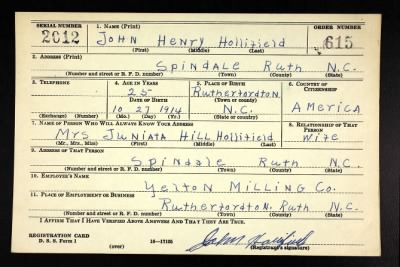 SERIAL NUMBER 1. NAME (Print) ORDER NUMBER
2012 John Henry Hollifield 615
(First) (Middle) (Last)
2. ADDRESS (Print)
Spindale Ruth N.C.
(Number and street or R. F. D. number) (Town) (County) (State)
3. TELEPHONE 4. AGE IN YEARS 5. PLACE OF BIRTH 6. COUNTRY OF CITIZENSHIP
25 Rutherfordton
DATE OF BIRTH (Town or county)
10 27 1914 N.C. America
(Exchange) (Number) (Mo.) (Day) (Yr.) (State or country)
7. NAME OF PERSON WHO WILL ALWAYS KNOW YOUR ADDRESS 8. RELATIONSHIP OF THAT PERSON
Mrs Juniata Hill Hollifield Wife
(Mr., Mrs., Miss) (First) (Middle) (Last)
9. ADDRESS OF THAT PERSON
Spindale Ruth N.C.
(Number and street or R. F. D. number) (Town) (County) (State)
10. EMPLOYER'S NAME
Yelton Milling Co.
11. PLACE OF EMPLOYMENT OR BUSINESS
Rutherfordton. Ruth N.C.
(Number and street or R. F. D. number) (Town) (County) (State)
I AFFIRM THAT I HAVE VERIFIED ABOVE ANSWERS AND THAT THEY ARE TRUE.
REGISTRATION CARD
D. S. S. Form 1 (over) 16-17105 (Registrant's signature)